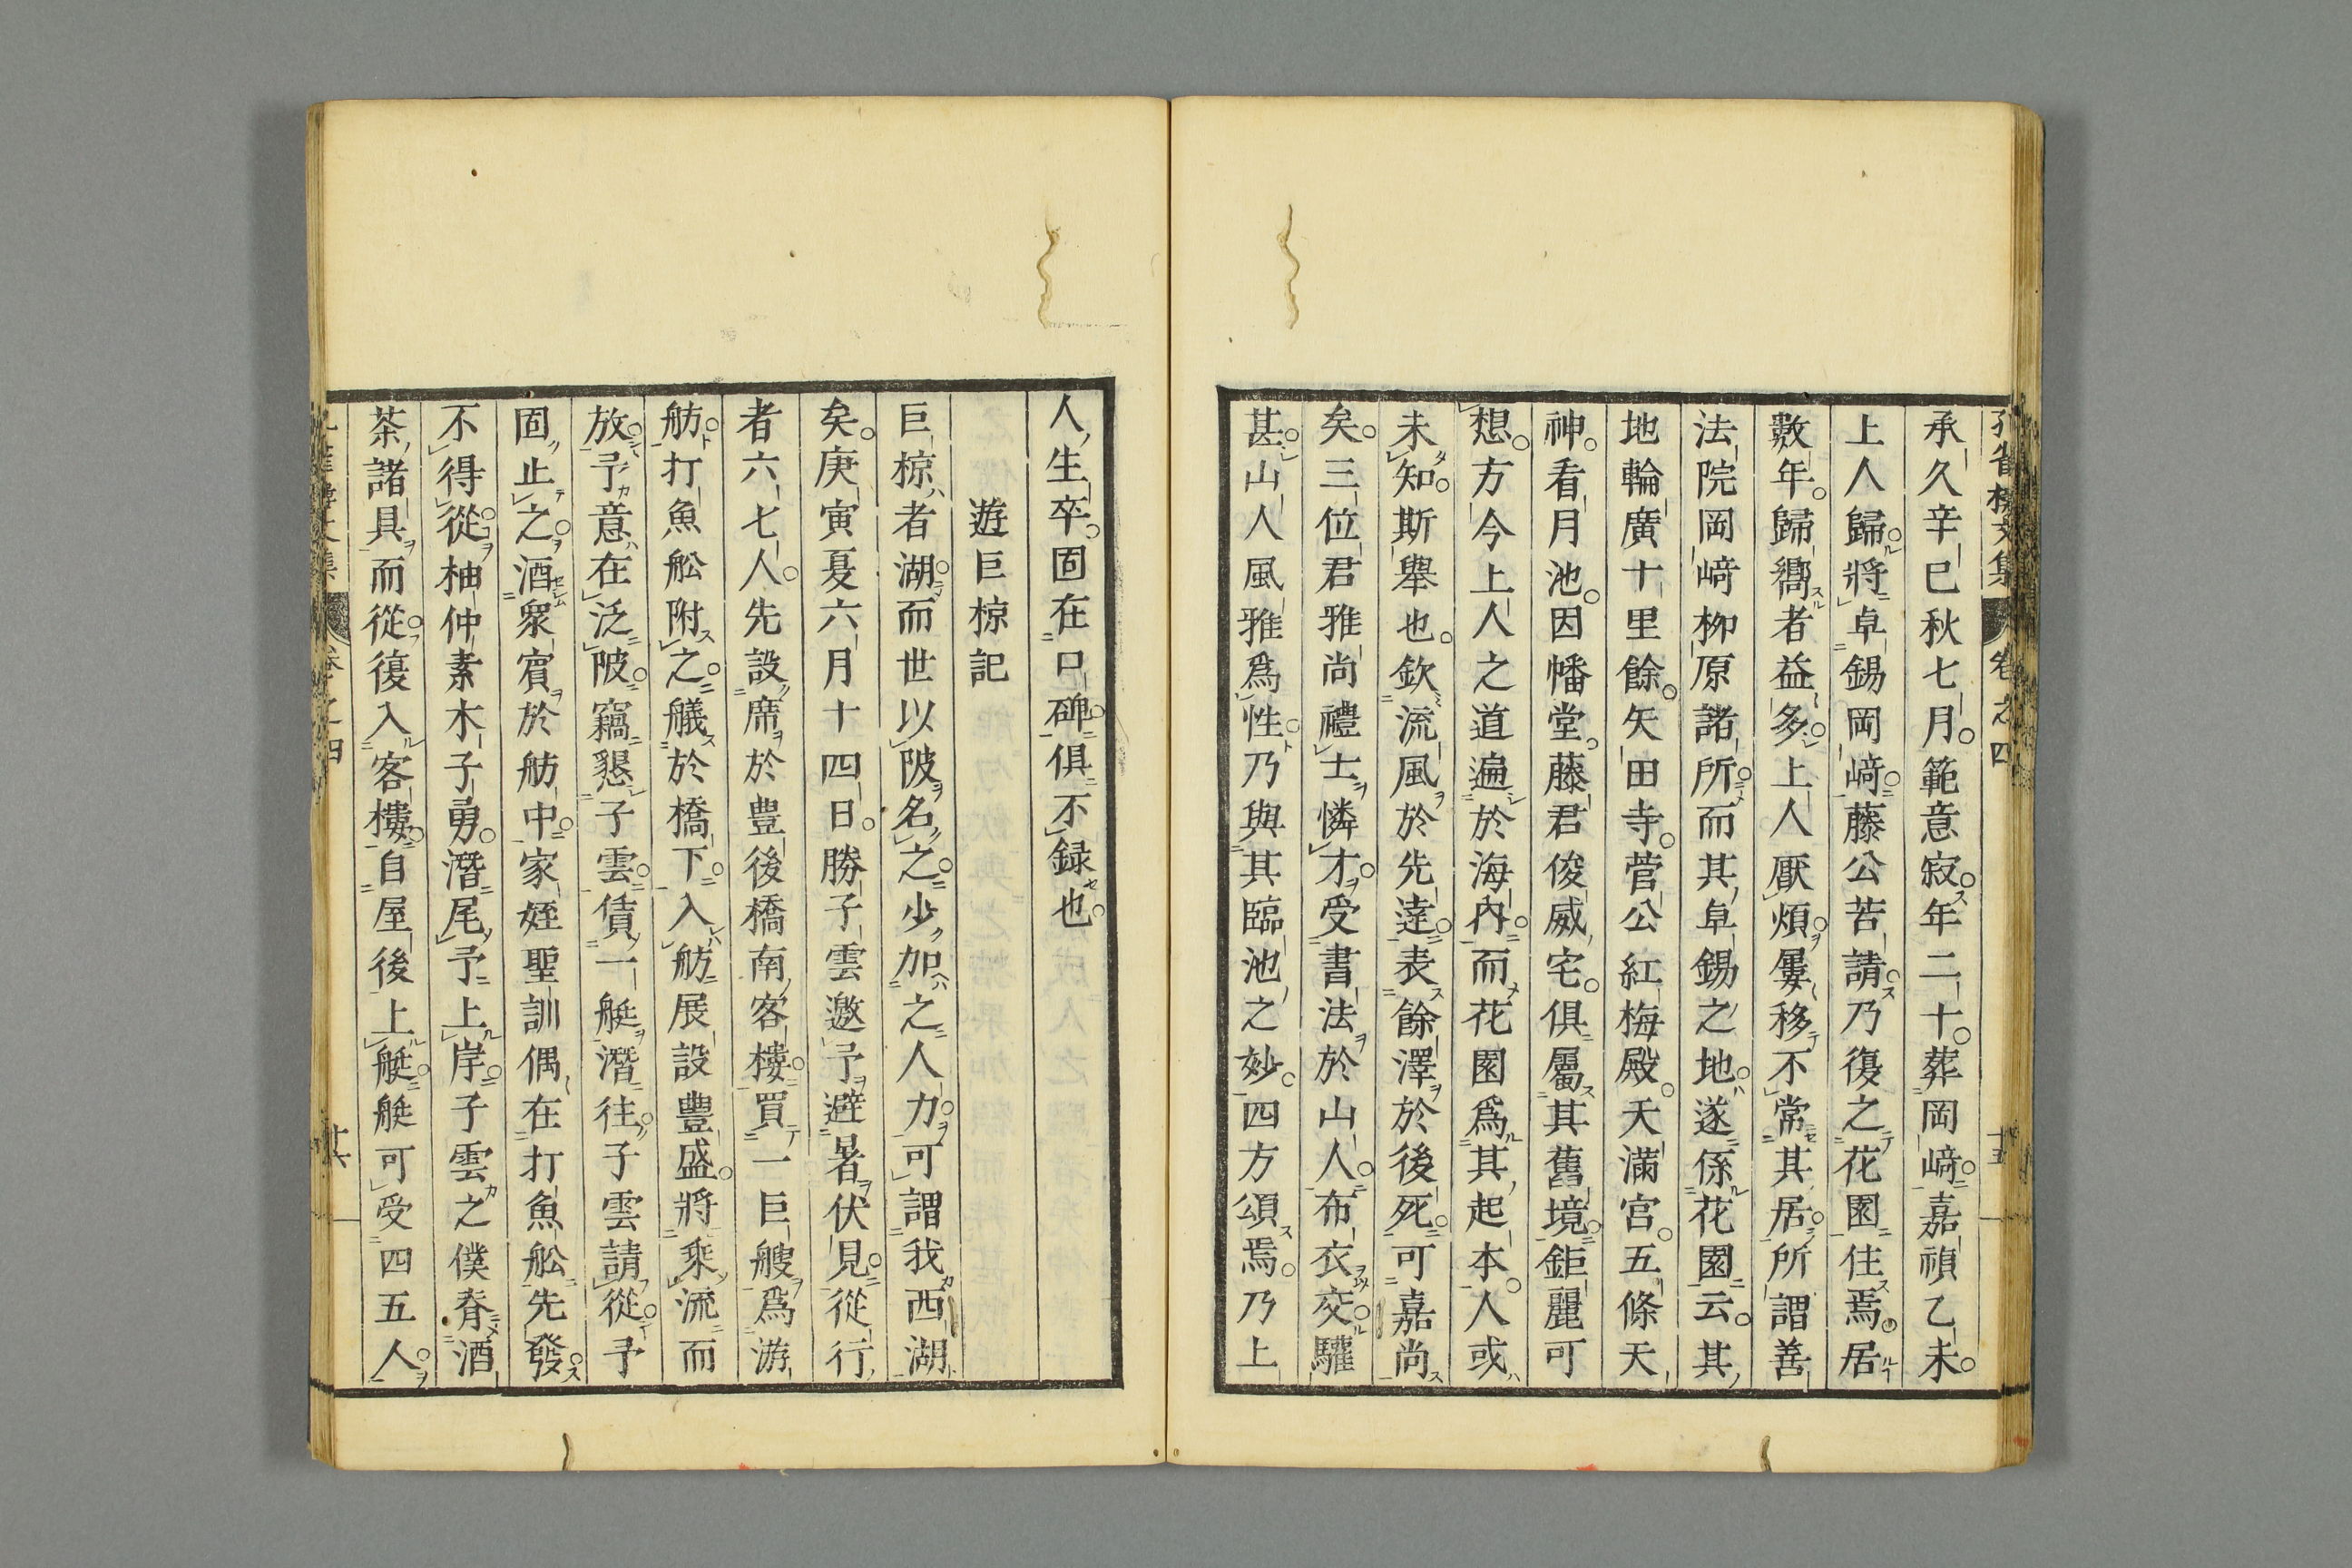 承久辛巳秋七月範意寂年二十葬岡﨑嘉禎乙未
上人歸將卓錫岡﨑藤公苦請乃復之花園住焉居
數年歸嚮者益多上人厭煩屢移不常其居所謂善
法院岡﨑柳原諸所而其卓錫之地遂係花園云其
地輪廣十里餘矢田寺菅公紅梅殿天滿宮五條天
神看月池因幡堂藤君俊威宅俱屬其舊境鉅麗可
想方今上人之道遍於海內而花園爲其起本人或
未知斯舉也欽流風於先達表餘澤於後死可嘉尚
矣三位君雅尚禮士憐才受書法於山人布衣交驩
甚山人風雅爲性乃與其臨池之妙四方頌焉乃上
人生卒固在口碑俱不録也
遊巨椋記
巨椋者湖而世以陂名之少加之人力可謂我西湖
矣庚寅夏六月十四日勝子雲邀予避暑伏見從行
者六七人先設席於豊後橋南客樓買一巨艘爲游
舫打魚舩附之艤於橋下入舫展設豊盛將乘流而
放予意在泛陂竊懇子雲賃一艇潛往子雲請從予
固止之酒衆賓於舫中家姪聖訓偶在打魚舩先發
不得從柚仲素木子勇潛尾予上岸子雲之僕脊酒
茶諸具而從復入客樓自屋後上艇艇可受四五人
卷之四
十五